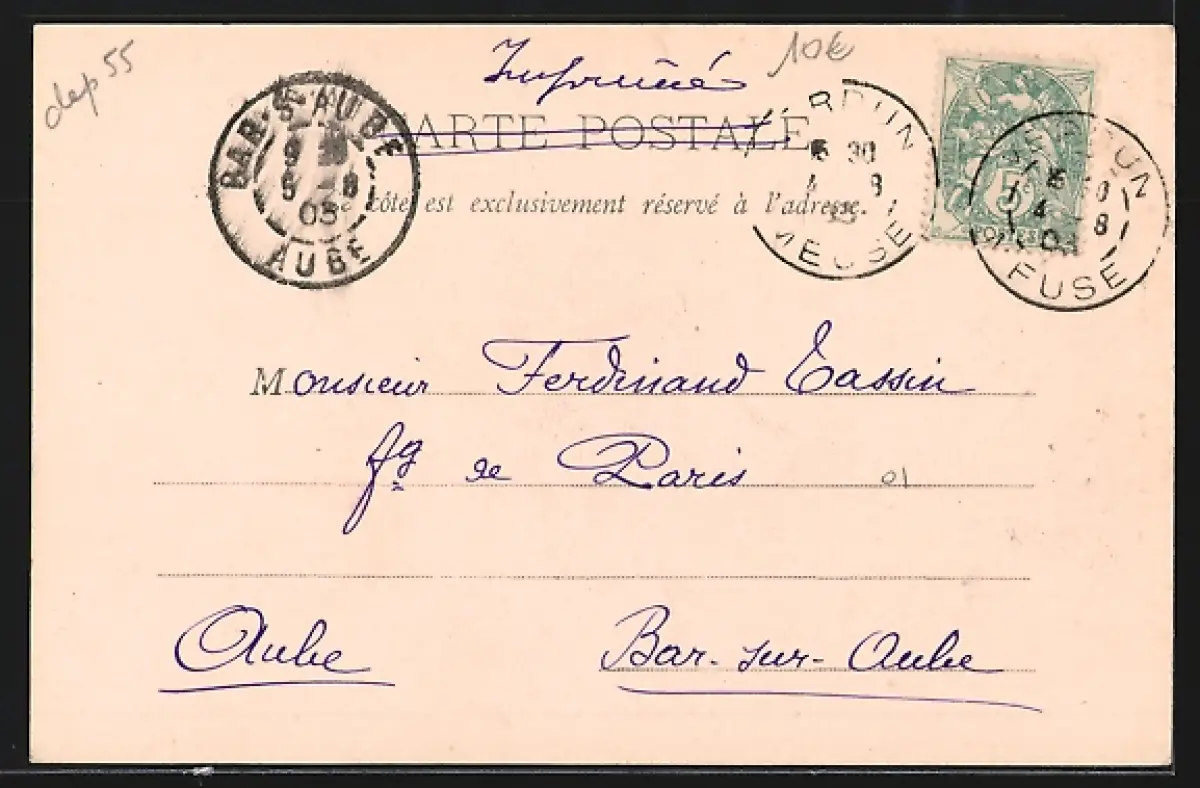 dep 55
Imprimé
10€
CARTE POSTALE
Ce côté est exclusivement réservé à l'adresse.
BAR-S-AUBE
5 -8
03
AUBE
VERDUN
30
4 8
MEUSE
5c
VERDUN
4 -8
03
MEUSE
Monsieur Ferdinand Tassin
fg de Paris
01
Aube
Bar-sur-Aube